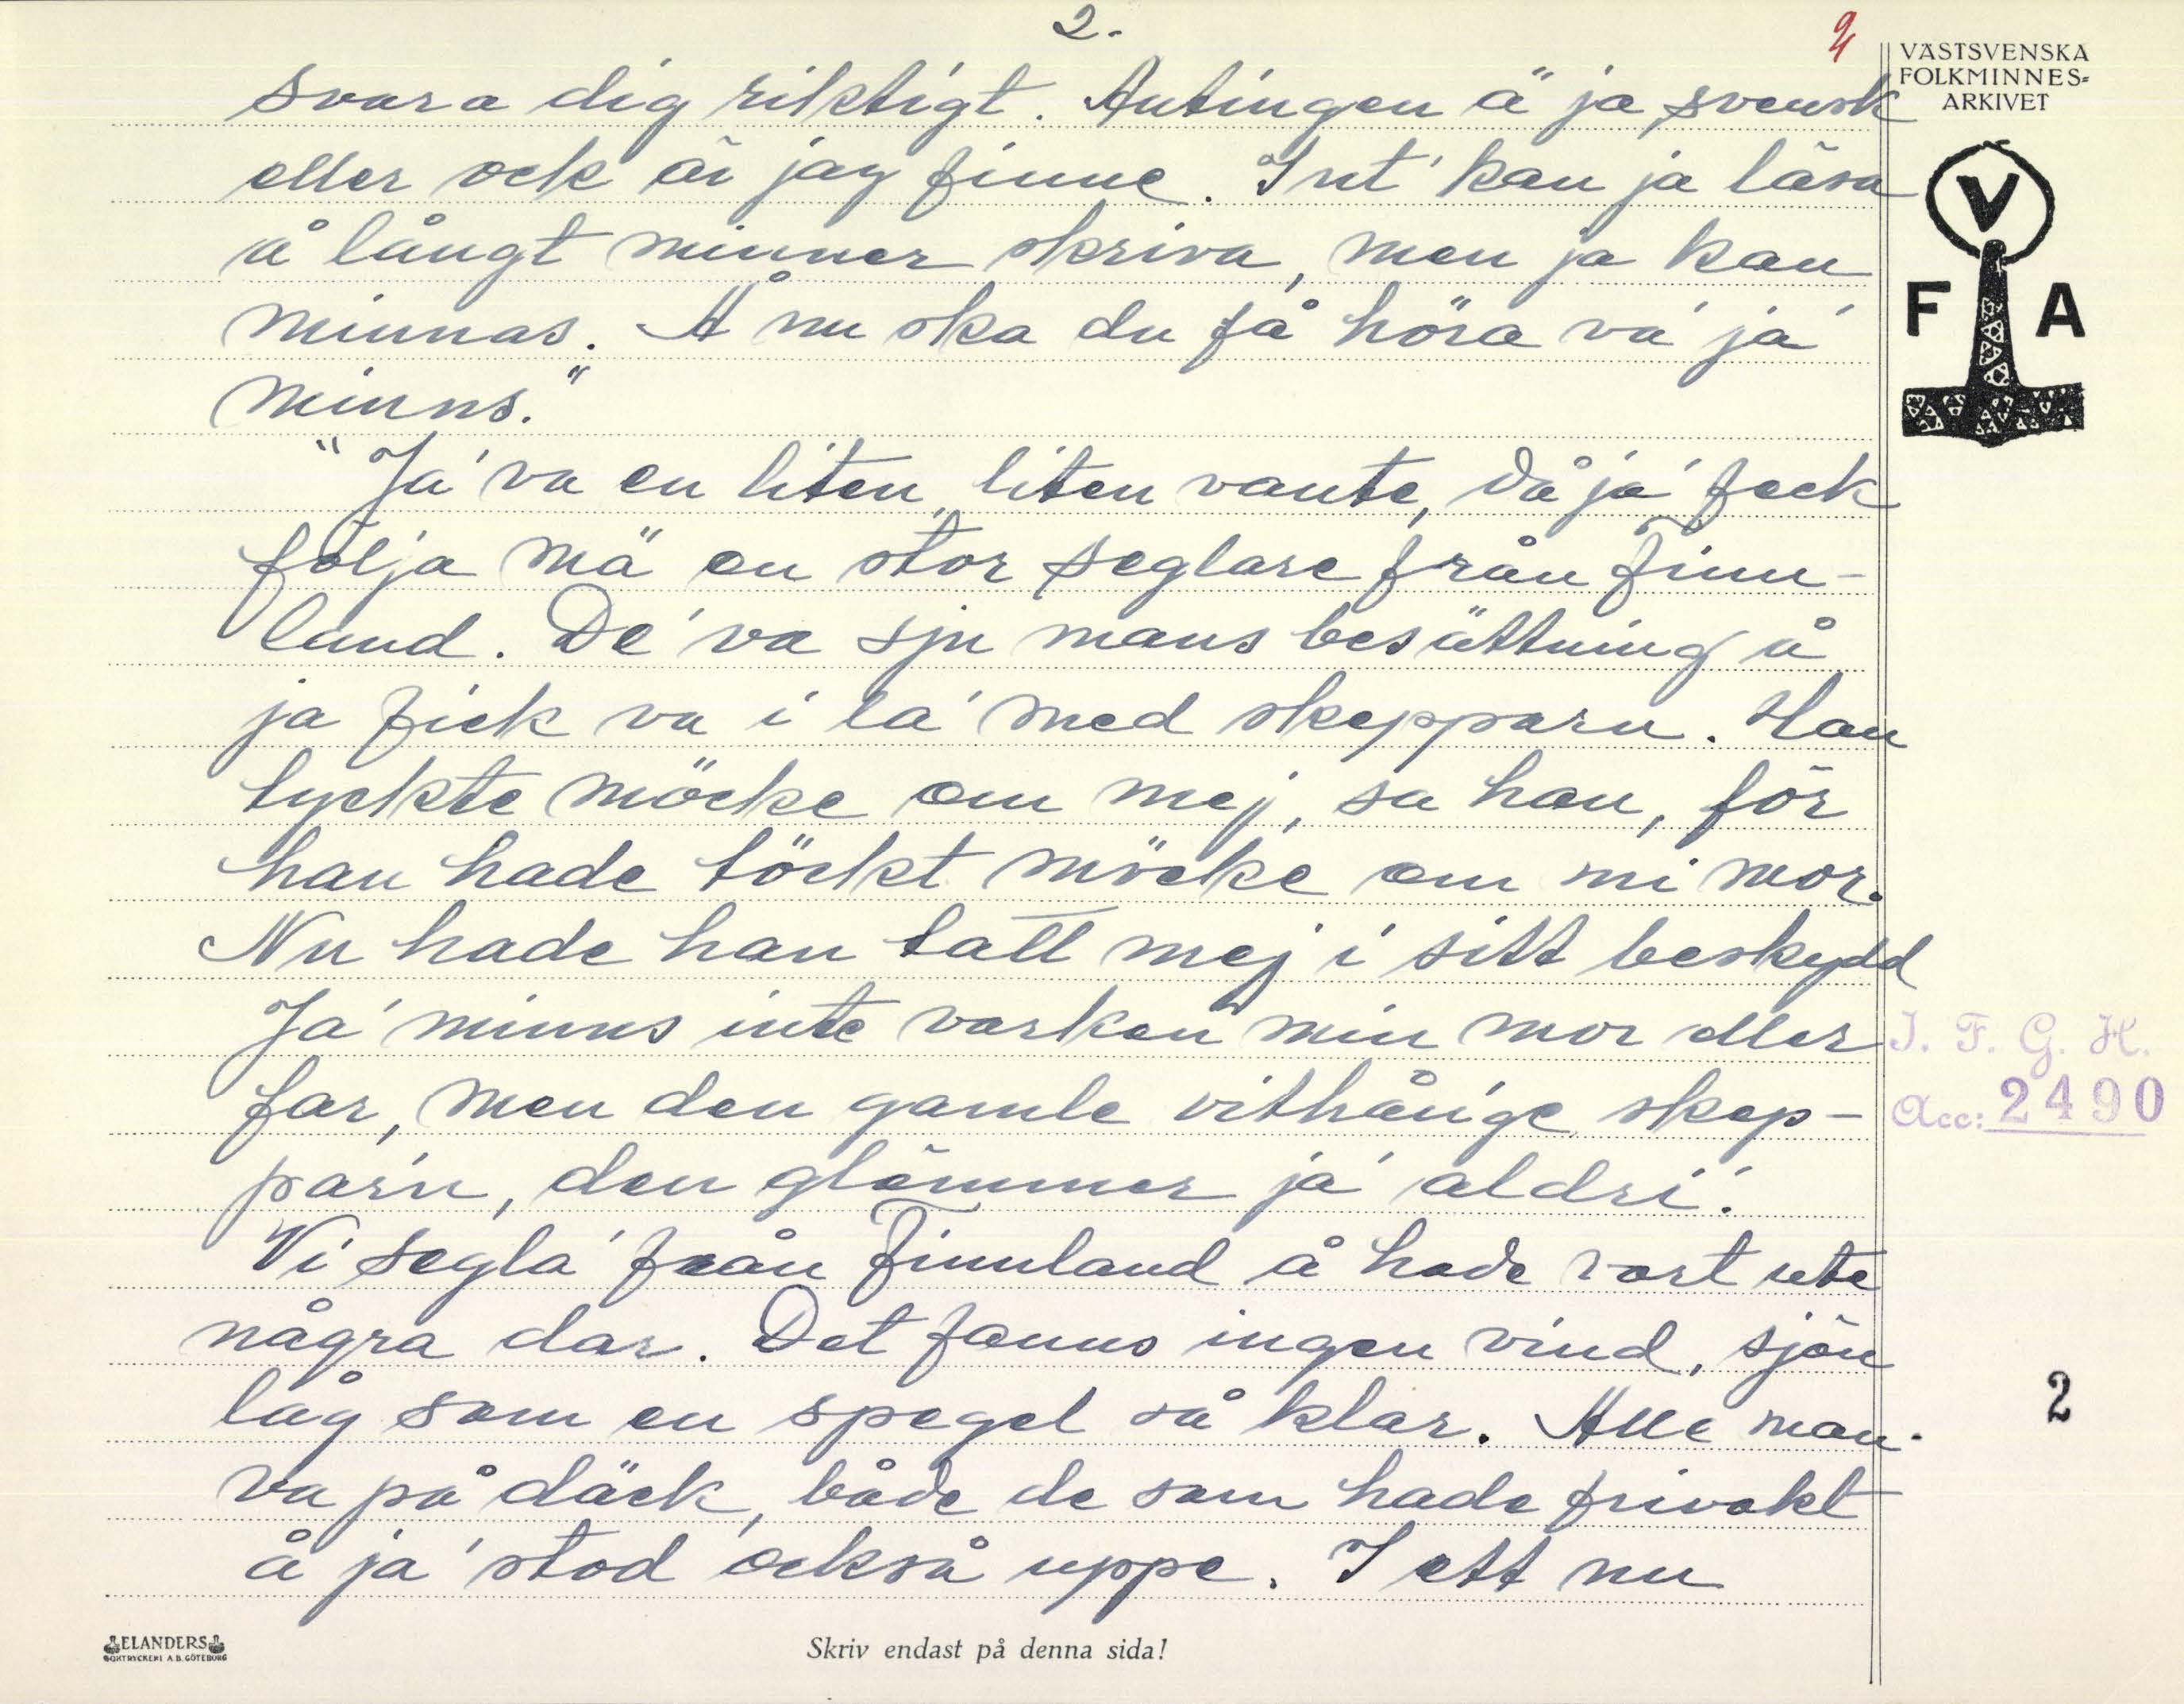 2.
2
VÄSTSVENSKA
FOLKMINNES=
ARKIVET
svara dig riktigt. Antingen ä ja svensk
eller ock äi jag finne. Int' kan ja läsa
å långt minner skriva, men ja kan
minnas. Å nu ska du få höra va' ja'
minns."
V
F A
"Ja' va en liten, liten vante, då ja' feck
följa mä en stor seglare från Finn-
land. De' va sju mans besättning å
ja fick va i la' med skepparn. Han
tyckte möcke om mej, sa han, för
han hade töckt möcke om mi mor.
Nu hade han tatt mej i sitt beskydd
Ja' minns inte varken min mor eller
far, men den gamle vithårige skep-
parn, den glömmer ja' aldri'.
I. F. G. H.
Acc: 2490
Vi segla' från Finnland å hade vart ute
några dar. Det fanns ingen vind, sjön
låg som en spegel så klar. Alle man
va på däck, både de som hade frivakt
å ja' stod också uppe. I ett nu
2
ELANDERS
BOKTRYCKERI A.B. GÖTEBORG
Skriv endast på denna sida!